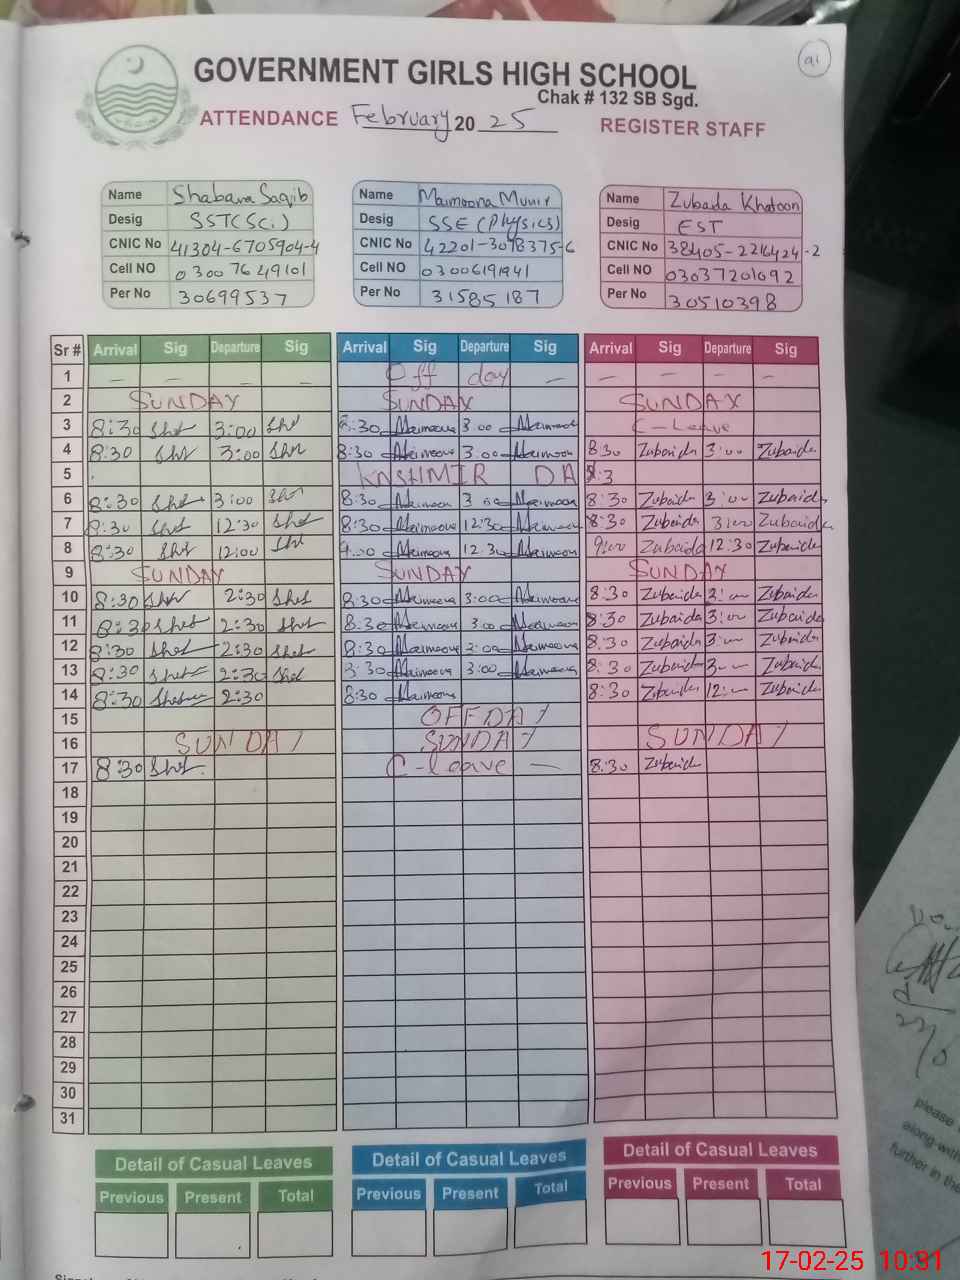 91
GOVERNMENT GIRLS HIGH SCHOOL
Chak # 132 SB Sgd.
ATTENDANCE February 20 25 REGISTER STAFF
Name Shabana Saqib Name Maimoona Munir Name Zubaida Khatoon
Desig SST(Sci) Desig SSE (Physics) Desig EST
CNIC No 41304-6705904-4 CNIC No 42201-3098375-6 CNIC No 38405-2216424-2
Cell NO 0300 7649101 Cell NO 03006191941 Cell NO 03037201092
Per No 30699537 Per No 31585187 Per No 30510398
Sr # Arrival Sig Departure Sig Arrival Sig Departure Sig Arrival Sig Departure Sig
1 — — — — Off day — — — — —
2 SUNDAY SUNDAY SUNDAY
3 8:30 3:00 8:30 Maimoona 3:00 Maimoona C-Leave
4 8:30 3:00 8:30 Maimoona 3:00 Maimoona 8:30 Zubaida 3:00 Zubaida
5 KASHMIR DA
6 8:30 3:00 8:30 Maimoona 3:00 Maimoona 8:30 Zubaida 3:00 Zubaida
7 8:30 12:30 8:30 Maimoona 12:30 Maimoona 8:30 Zubaida 3:00 Zubaida
8 8:30 12:00 9:00 Maimoona 12:30 Maimoona 9:00 Zubaida 12:30 Zubaida
9 SUNDAY SUNDAY SUNDAY
10 8:30 2:30 8:30 Maimoona 3:00 Maimoona 8:30 Zubaida 3:00 Zubaida
11 8:30 2:30 8:30 Maimoona 3:00 Maimoona 8:30 Zubaida 3:00 Zubaida
12 8:30 2:30 8:30 Maimoona 3:00 Maimoona 8:30 Zubaida 3:00 Zubaida
13 8:30 2:30 8:30 Maimoona 3:00 Maimoona 8:30 Zubaida 3:00 Zubaida
14 8:30 2:30 8:30 Maimoona 8:30 Zubaida 12:00 Zubaida
15 OFF DAY
16 SUNDAY SUNDAY SUNDAY
17 8:30 C-leave — 8:30 Zubaida
18
19
20
21
22
23
24
25
26
27
28
29
30
31
Detail of Casual Leaves Detail of Casual Leaves Detail of Casual Leaves
Previous Present Total Previous Present Total Previous Present Total
please
along with
further in the
17-02-25 10:31